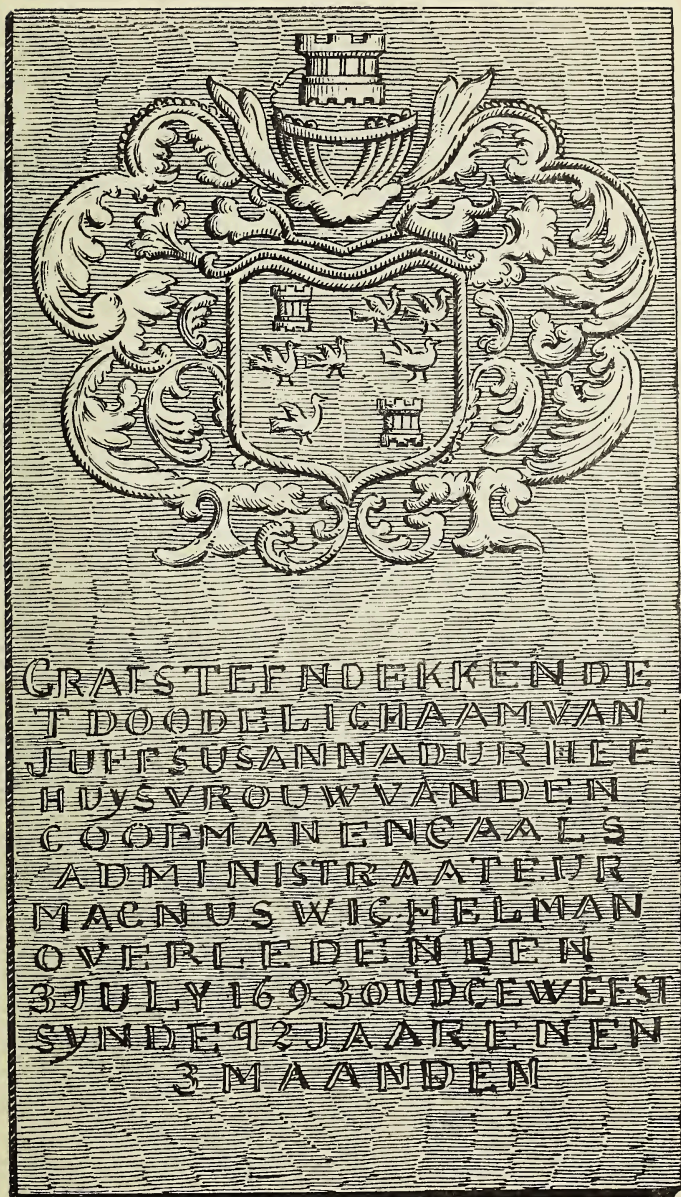 GRAFSTEEN DEKKENDE
T DOODE LICHAAM VAN
JUFF SUSANNA DURHEE
HUYSVROUW VAN DEN
COOPMAN EN CAALS
ADMINISTRAATEUR
MAGNUS WICHELMAN
OVERLEDEN DEN
3 JULY 1693 OUD GEWEEST
SYNDE 42 JAAREN EN
3 MAANDEN